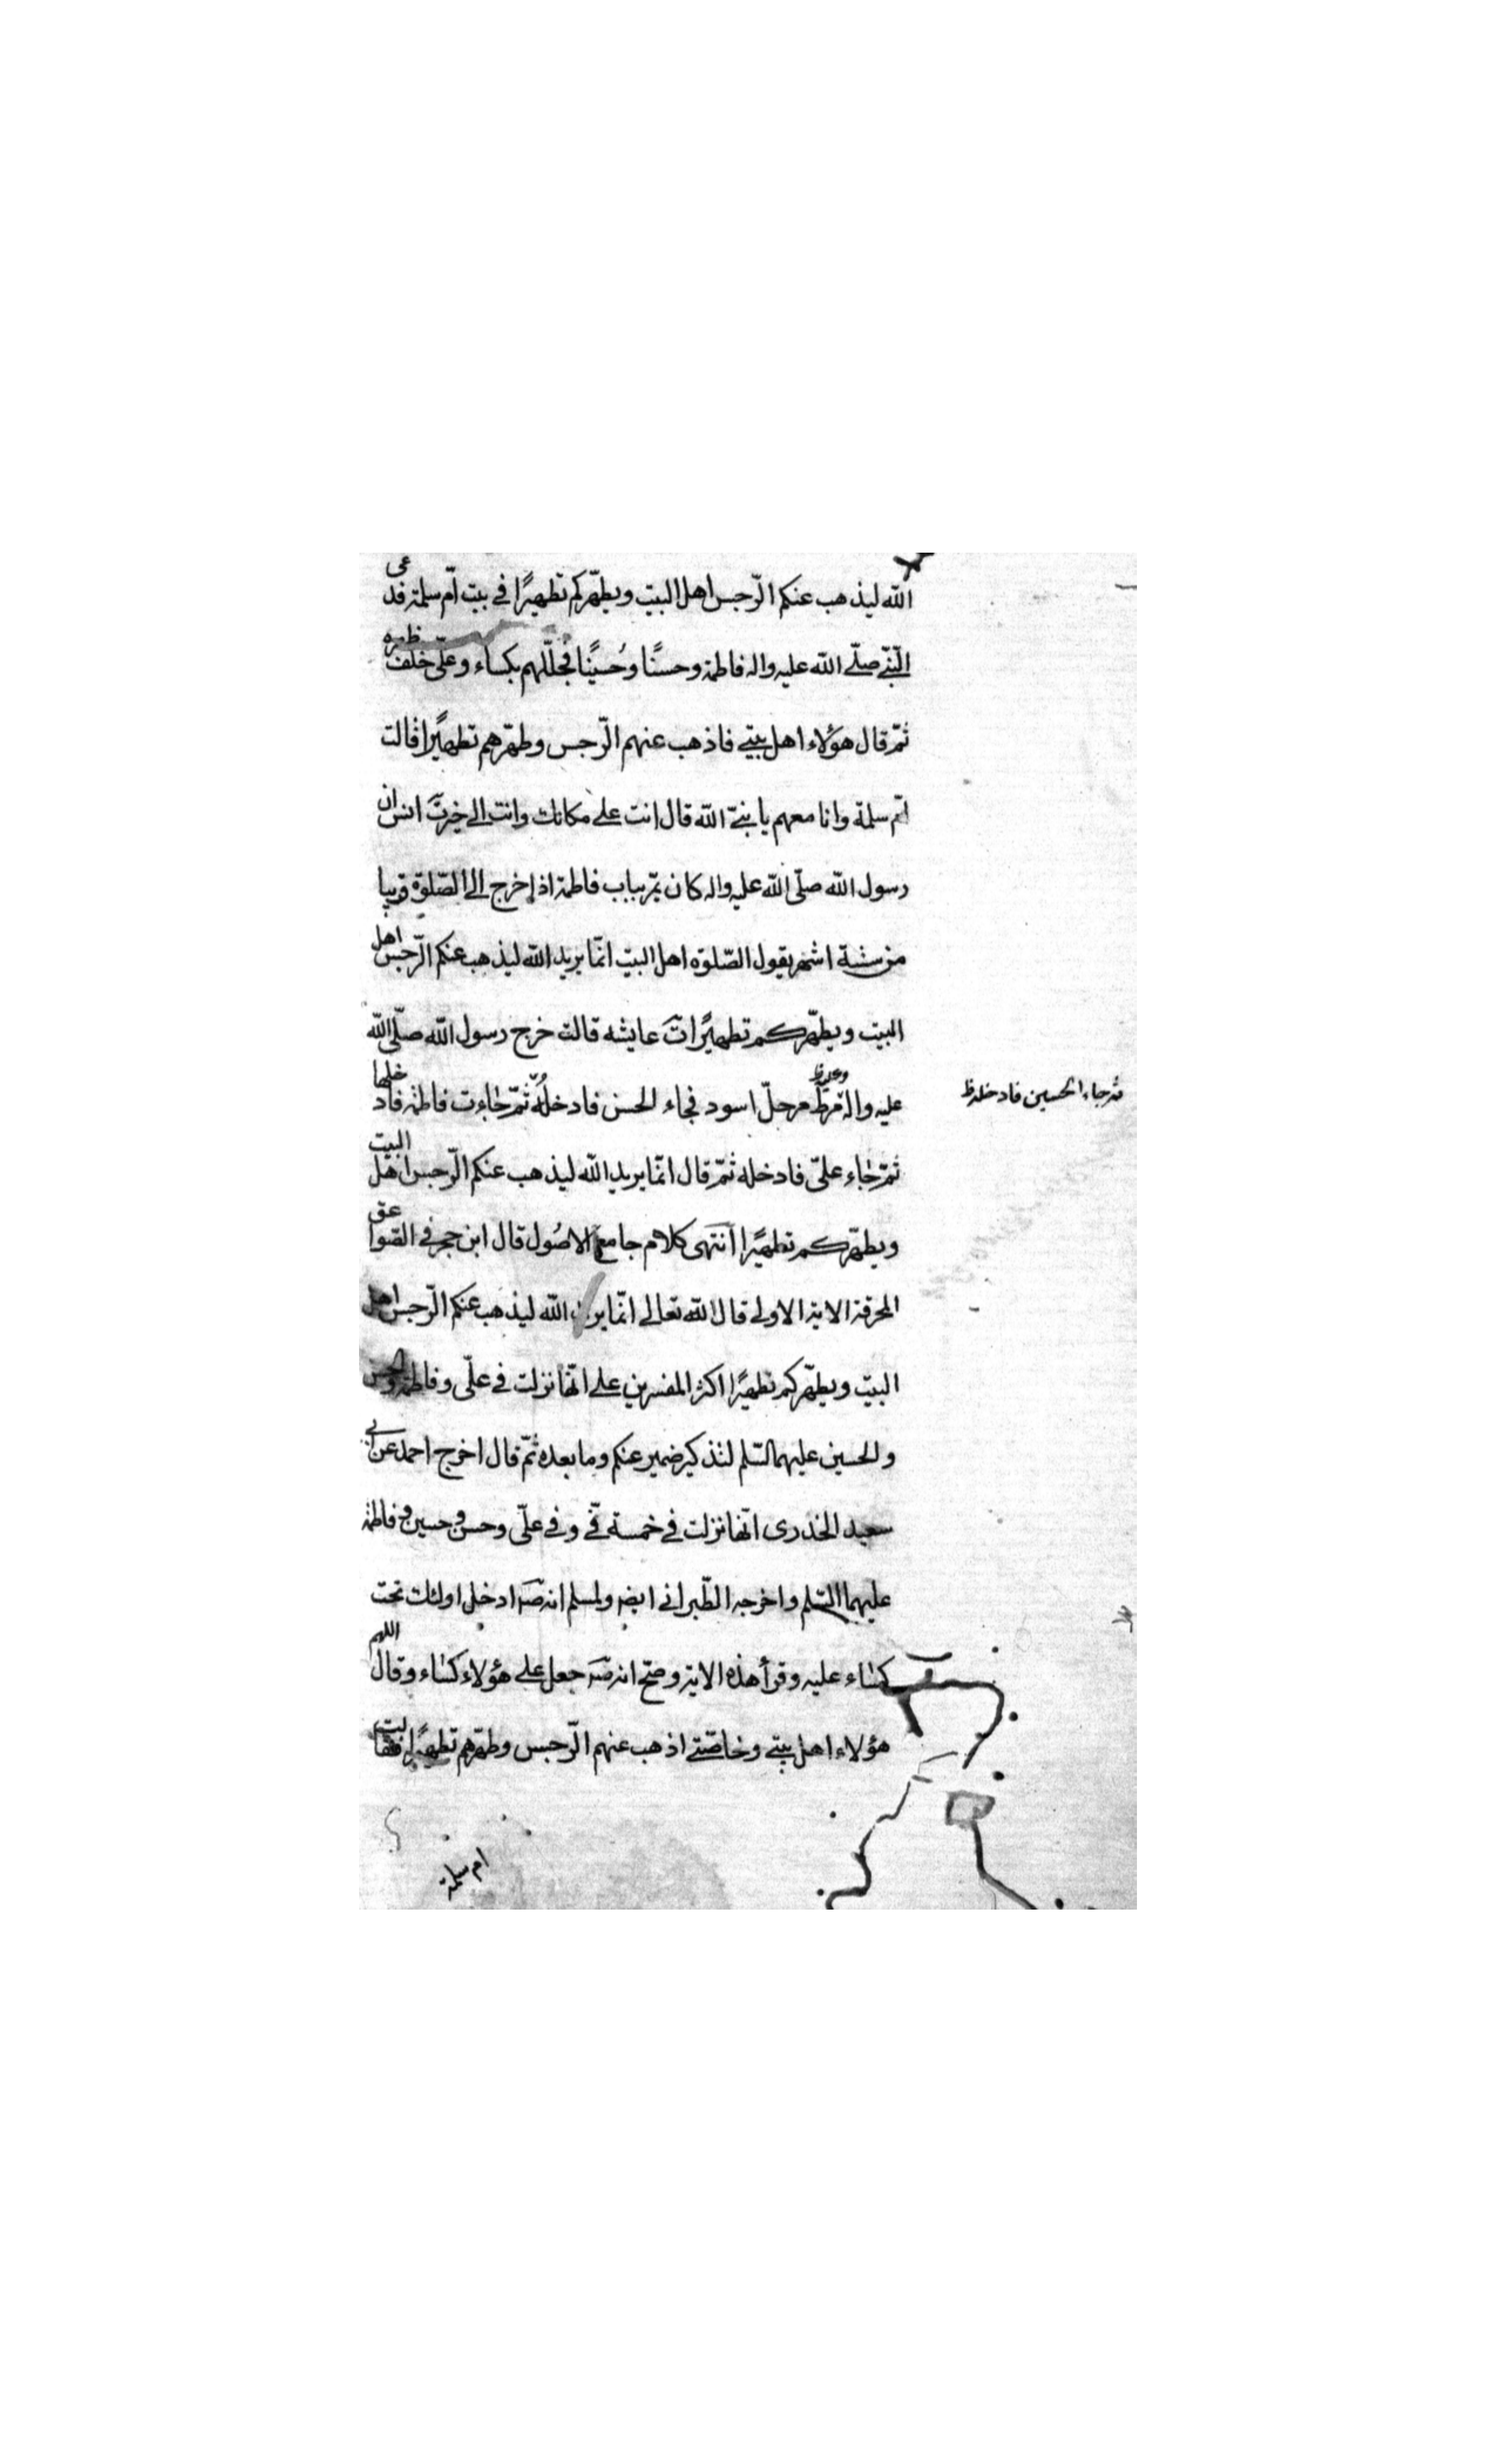 الله ليذهب عنكم الرّجس اهل البيت ويطهّركم تطهيرًا في بيت امّ سلمة فدعى
النّبيّ صلّى الله عليه واله فاطمة وحسنًا وحُسينًا فجلّلهم بكساء وعلىّ خلف ظهره
ثمّ قال هؤلاء اهل بيتي فاذهب عنهم الرّجس وطهّرهم تطهيرًا قالت
امّ سلمة وانا معهم يا نبيّ الله قال انت على مكانك وانت الى خير تَ انس ان
رسول الله صلّى الله عليه واله كان يمرّ بباب فاطمة اذا خرج الى الصّلوة قريبا
من ستة اشهر يقول الصّلوة اهل البيت انّما يريد الله ليذهب عنكم الرّجس اهل
البيت ويطهّركم تطهيرًا تَ عايشه قالت خرج رسول الله صلّى الله
عليه واله وعليه ظ مرط مرحلّ اسود فجاء الحسن فادخله ثمّ جاءت فاطمة فادخلها
ثم جاء الحسين فادخله ظ
ثمّ جاء علىّ فادخله ثمّ قال انّما يريد الله ليذهب عنكم الرّجس اهل البيت
ويطهّركم تطهيرًا انتهى كلام جامع الاصُول قال ابن حجر في الصّواعق
المحرقة الاية الاولى قال الله تعالى انّما يريد الله ليذهب عنكم الرّجس اهل
البيت ويطهّركم تطهيرًا اكثر المفسرين على انّها نزلت في علىّ وفاطمة والحسن
والحسين عليهم السّلم لتذكير ضمير عنكم وما بعده ثمّ قال اخرج احمد عن ابي
سعيد الخدرى انّها نزلت في خمسة فيّ وفي علىّ وحسن وحسين وفاطمة
عليهما السّلم واخرجه الطّبراني ايضا ولمسلم انه صَ ادخل اولئك تحت
كساء عليه وقرأ هذه الاية وصحّ انه صَ جعل على هؤلاء كساء وقال اللهم
هؤلاء اهل بيتي وخاصّتي اذهب عنهم الرّجس وطهّرهم تطهيرًا فقالت
ام سلمة